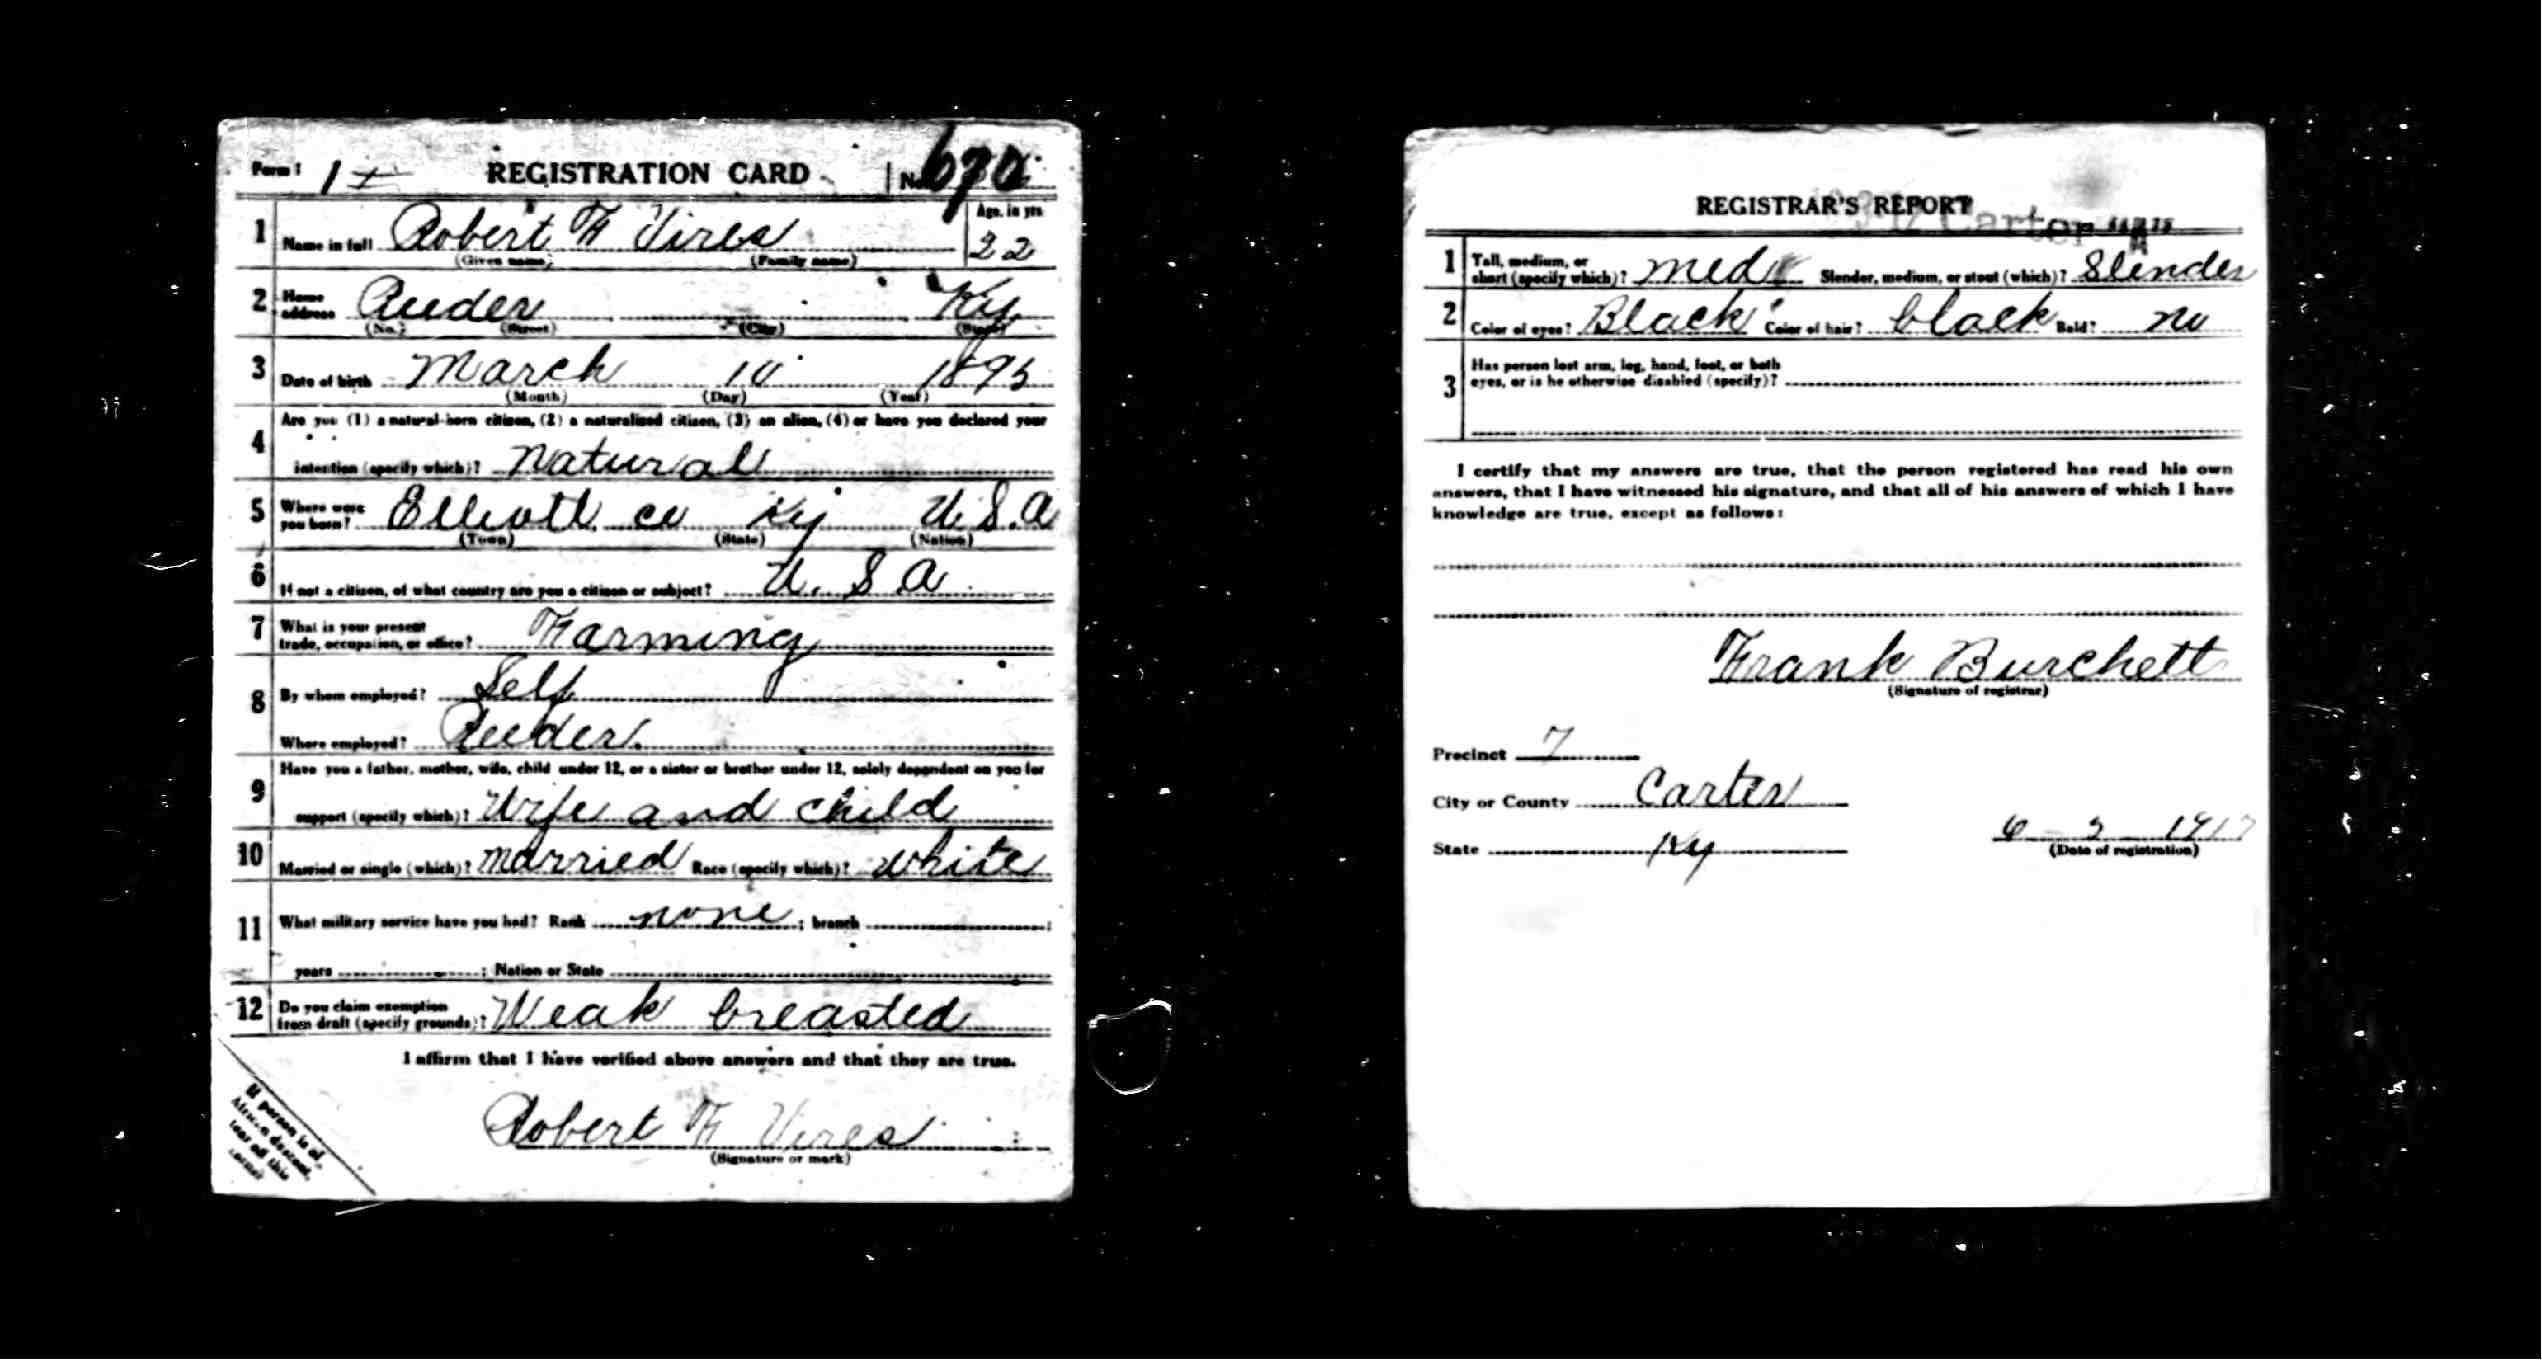 Form 1 REGISTRATION CARD No. 670
1 Name in full Robert F Vires Age, in yrs 22
(Given name) (Family name)
2 Home address Reeder Ky
(No.) (Street) (City) (State)
3 Date of birth March 10 1895
(Month) (Day) (Year)
Are you (1) a natural-born citizen, (2) a naturalized citizen, (3) an alien, (4) or have you declared your
4 intention (specify which)? Natural
5 Where were you born? Elliott co Ky U.S.A
(Town) (State) (Nation)
6 If not a citizen, of what country are you a citizen or subject? U. S A
7 What is your present trade, occupation, or office? Farming
8 By whom employed? Self
Where employed? Reeder
9 Have you a father, mother, wife, child under 12, or a sister or brother under 12, solely dependent on you for
support (specify which)? Wife and child
10 Married or single (which)? married Race (specify which)? white
11 What military service have you had? Rank none ; branch ;
years ; Nation or State
12 Do you claim exemption from draft (specify grounds)? Weak breasted
I affirm that I have verified above answers and that they are true.
Robert F Vires
(Signature or mark)
If person is of
African descent,
tear off this
corner
REGISTRAR'S REPORT
Carter
1 Tall, medium, or short (specify which)? med Slender, medium, or stout (which)? Slender
2 Color of eyes? Black Color of hair? black Bald? no
3 Has person lost arm, leg, hand, foot, or both
eyes, or is he otherwise disabled (specify)?
I certify that my answers are true, that the person registered has read his own
answers, that I have witnessed his signature, and that all of his answers of which I have
knowledge are true, except as follows:
Frank Burchett
(Signature of registrar)
Precinct 7
City or County Carter
State Ky 6 5 1917
(Date of registration)